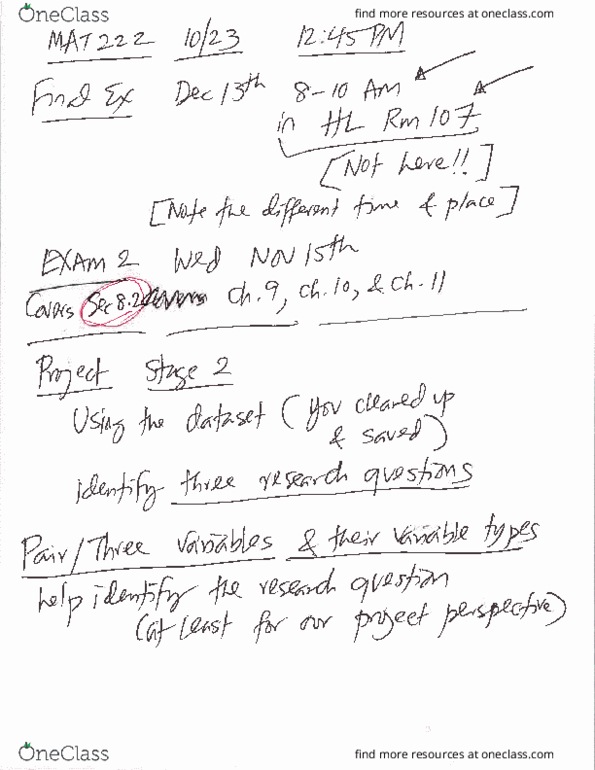 OneClass
find more resources at oneclass.com
MAT 222 10/23 12:45 PM
Final Ex Dec 13th 8-10 Am
in HL Rm 107
[Not here!!]
[Note the different time & place]
EXAM 2 Wed NOV 15th
Covers Sec 8.2 Ch.9, Ch.10, & Ch.11
Project Stage 2
Using the dataset (you cleared up
& saved)
identify three research questions
Pair/Three variables & their variable types
help identify the research question
(at least for our project perspective)
OneClass
find more resources at oneclass.com